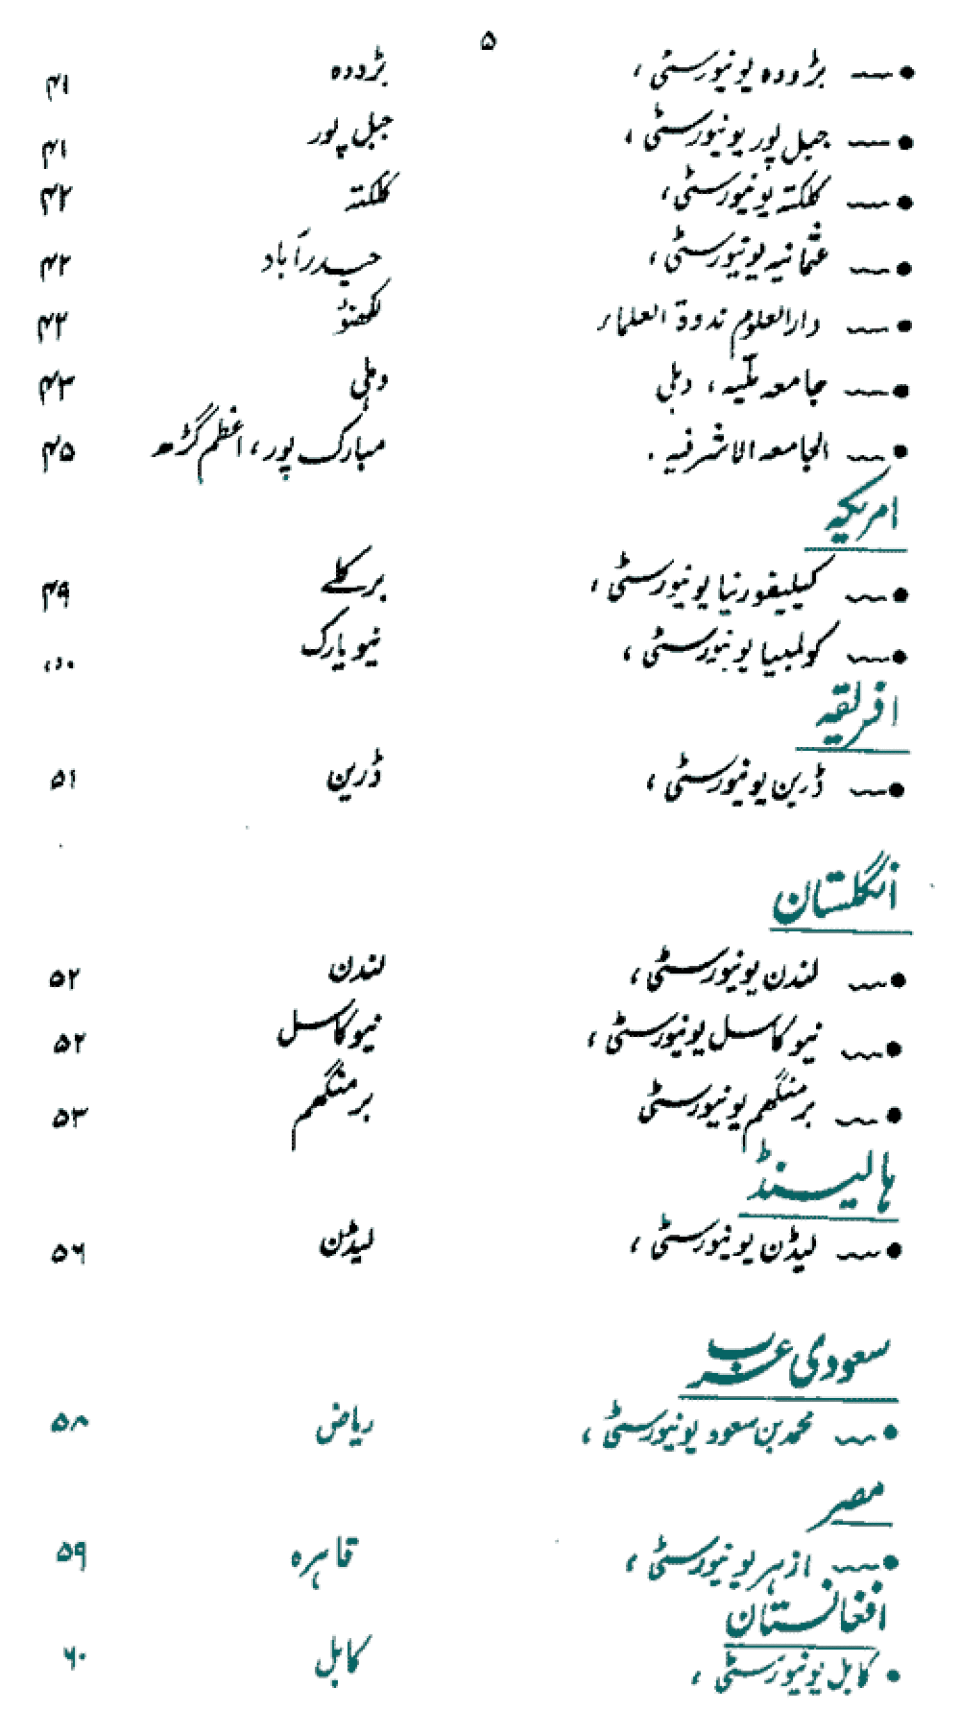 ۵
بڑودہ یونیورسٹی، بڑودہ ۴۱
جبل پور یونیورسٹی، جبل پور ۴۱
کلکتہ یونیورسٹی، کلکتہ ۴۲
عثمانیہ یونیورسٹی، حیدرآباد ۴۲
دارالعلوم ندوۃ العلماء لکھنؤ ۴۲
جامعہ ملّیہ، دہلی دہلی ۴۳
الجامعہ الاشرفیہ۔ مبارک پور، اعظم گڑھ ۴۵
امریکہ
کیلیفورنیا یونیورسٹی، برکلے ۴۹
کولمبیا یونیورسٹی، نیویارک ۵۰
افریقہ
ڈربن یونیورسٹی، ڈربن ۵۱
انگلستان
لندن یونیورسٹی، لندن ۵۲
نیوکاسل یونیورسٹی، نیوکاسل ۵۲
برمنگھم یونیورسٹی برمنگھم ۵۳
ہالینڈ
لیڈن یونیورسٹی، لیڈن ۵۶
سعودی عرب
محمد بن سعود یونیورسٹی، ریاض ۵۸
مصر
ازہر یونیورسٹی، قاہرہ ۵۹
افغانستان
کابل یونیورسٹی، کابل ۶۰